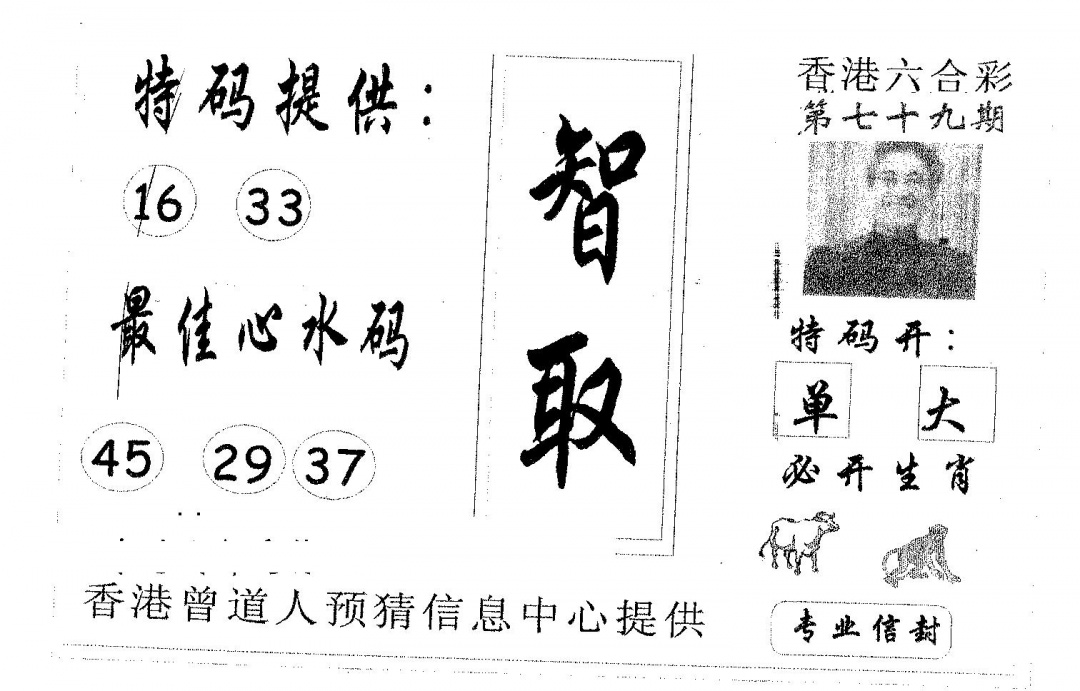 特码提供：
16 33
最佳心水码
45 29 37
智取
香港六合彩
第七十九期
特码开：
单 大
必开生肖
专业信封
香港曾道人预猜信息中心提供